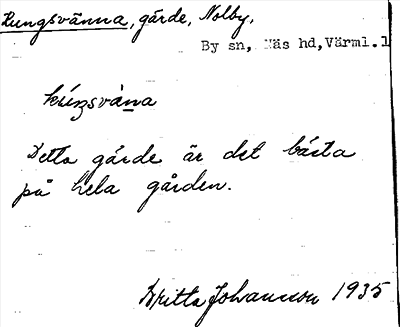 Kungsvänna, gärde, Nolby,
By sn, Näs hd, Värml. l
Detta gärde är det bästa
på hela gården.
Britta Johansson 1935